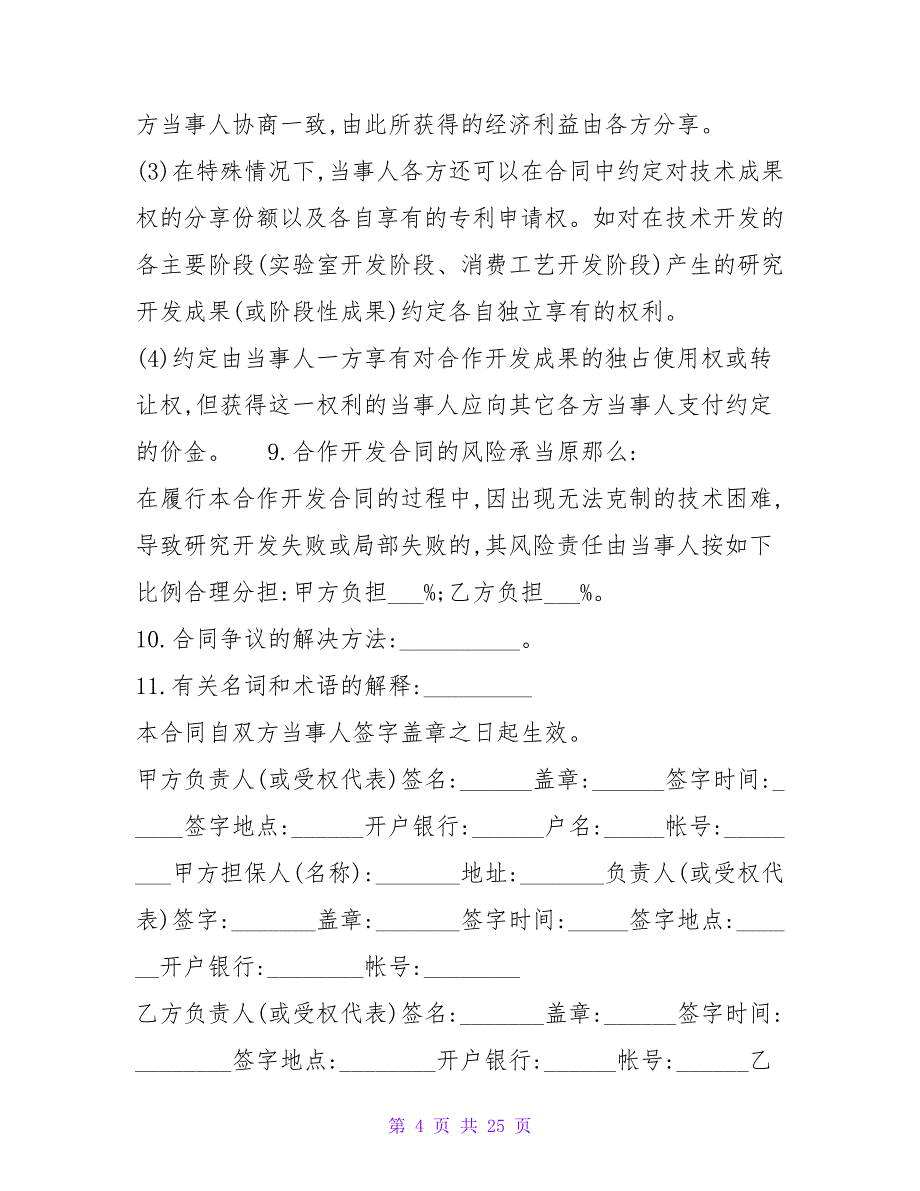 方当事人协商一致,由此所获得的经济利益由各方分享。
(3)在特殊情况下,当事人各方还可以在合同中约定对技术成果
权的分享份额以及各自享有的专利申请权。如对在技术开发的
各主要阶段(实验室开发阶段、消费工艺开发阶段)产生的研究
开发成果(或阶段性成果)约定各自独立享有的权利。
(4)约定由当事人一方享有对合作开发成果的独占使用权或转
让权,但获得这一权利的当事人应向其它各方当事人支付约定
的价金。 9.合作开发合同的风险承当原那么:
在履行本合作开发合同的过程中,因出现无法克制的技术困难,
导致研究开发失败或局部失败的,其风险责任由当事人按如下
比例合理分担:甲方负担___%;乙方负担___%。
10.合同争议的解决方法:__________。
11.有关名词和术语的解释:_________
本合同自双方当事人签字盖章之日起生效。
甲方负责人(或受权代表)签名:______盖章:______签字时间:_
____签字地点:______开户银行:______户名:_____帐号:_____
___甲方担保人(名称):_______地址:_______负责人(或受权代
表)签字:_______盖章:_______签字时间:_____签字地点:____
__开户银行:________帐号:________
乙方负责人(或受权代表)签名:_______盖章:______签字时间:
________签字地点:________开户银行:______帐号:______乙
第 4 页 共 25 页